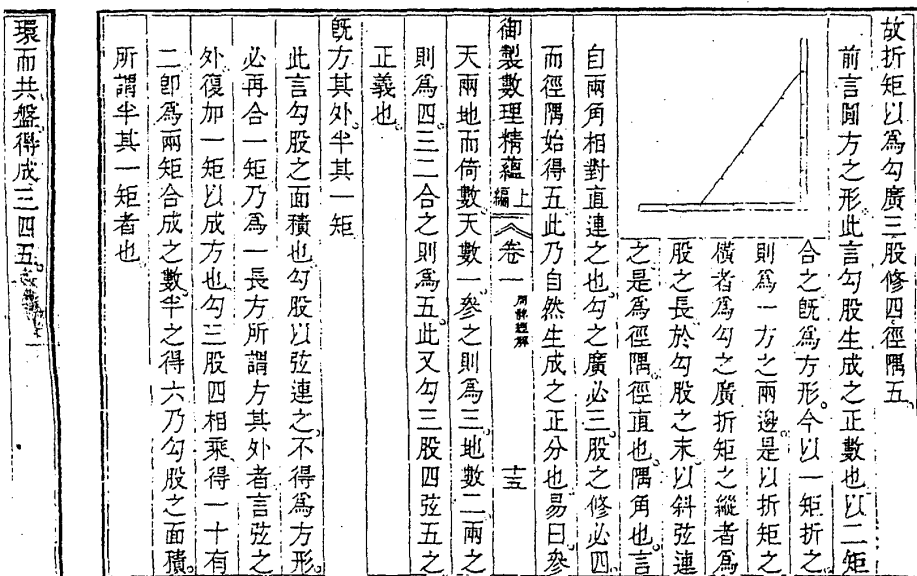 故折矩以爲勾廣三股修四徑隅五。
前言圓方之形此言勾股生成之正數也以二矩
合之旣爲方形。今以一矩折之
則爲一方之兩邊。是以折矩之
橫者爲勾之廣折矩之縱者爲
股之長於勾股之末以斜弦連
之是爲徑隅。徑直也。隅角也。言
自兩角相對直連之也。勾之廣必三。股之修必四。
而徑隅始得五此乃自然生成之正分也易曰參
御製數理精蘊 上編 卷一 周髀經解 十五
天兩地而倚數。天數一參之則爲三。地數二兩之
則爲四。三二合之則爲五。此又勾三股四弦五之
正義也。
旣方其外。半其一矩
此言勾股之面積也。勾股以弦連之。不得爲方形。
必再合一矩乃爲一長方所謂方其外者言弦之
外復加一矩以成方也勾三股四相乘。得一十有
二卽爲兩矩合成之數。半之得六乃勾股之面積。
所謂半其一矩者也。
環而共盤。得成三四五。